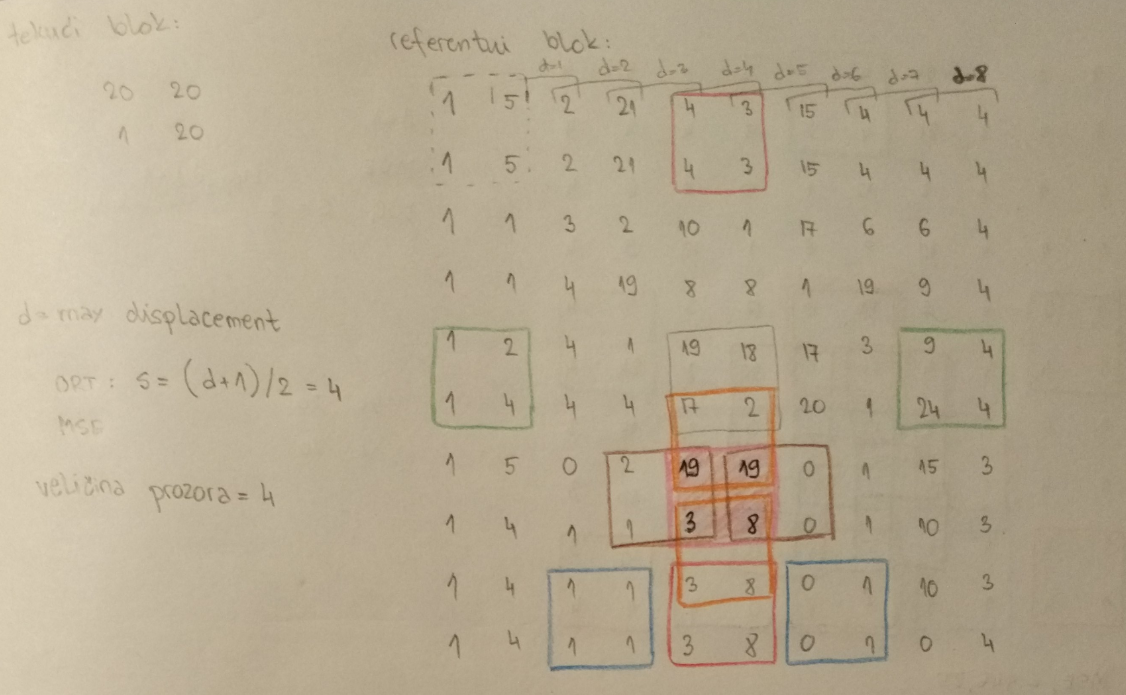 tekući blok:
20 20
1 20
d = max displacement
ORT: s = (d+1)/2 = 4
MSE
veličina prozora = 4
referentni blok:
d=1 d=2 d=3 d=4 d=5 d=6 d=7 d=8
1 5 2 21 4 3 15 4 4 4
1 5 2 21 4 3 15 4 4 4
1 1 3 2 10 1 17 6 6 4
1 1 4 19 8 8 1 19 9 4
1 2 4 1 19 18 17 3 9 4
1 4 4 4 17 2 20 1 24 4
1 5 0 2 19 19 0 1 15 3
1 4 1 1 3 8 0 1 10 3
1 4 1 1 3 8 0 1 10 3
1 4 1 1 3 8 0 1 0 4